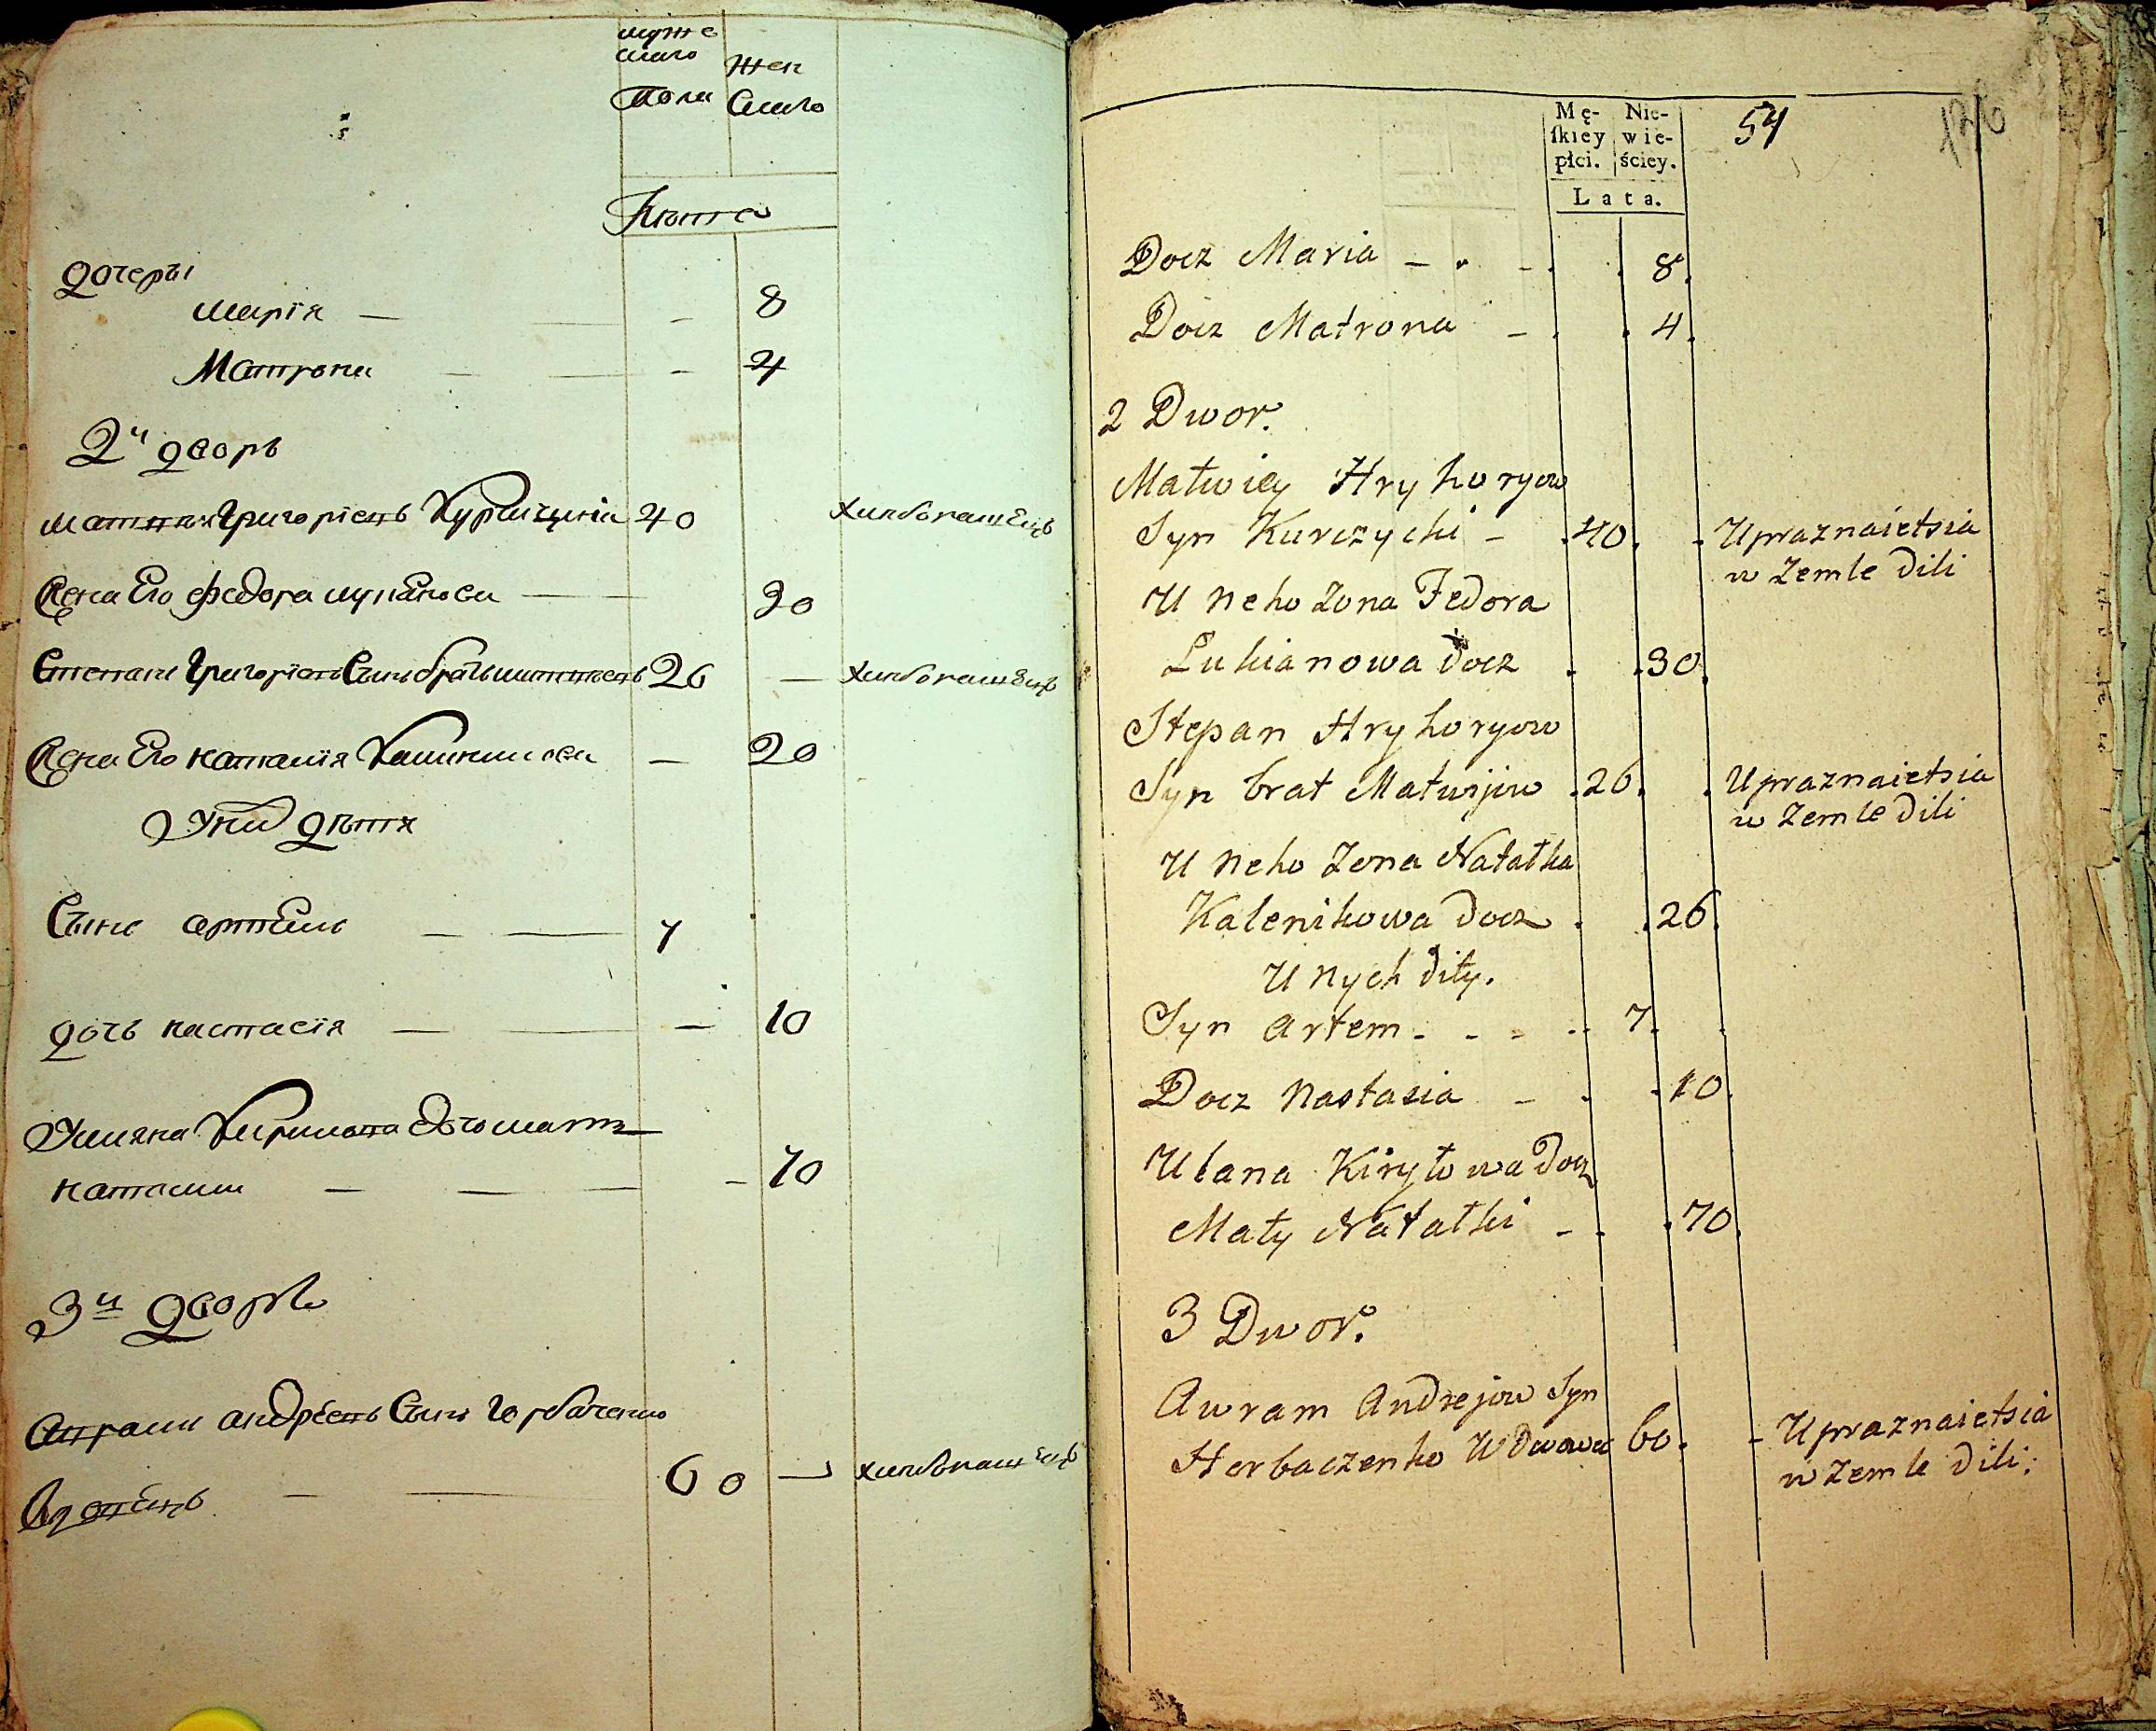 мужескаго
Жен
пола скаго
Лѣта
дочеры
Марія — — - 8
Матрона — — - 4
2й дворъ
Матвей Григоріевъ Курчицкій 40 хлибопашецъ
Жена Его Федора Лукянова — 30
Степанъ Григоріевъ Сынъ братъ Матвѣевъ 26 — хлибопашецъ
Жена Его Наталія Калиникова — 20
У них дѣтя
Сынъ Артемъ — — 7
дочь Настасія — — 10
Уляна Кирилова дочь мать
Наталии — — — - 70
3й дворъ
Аврамъ Андреевъ Сынъ Горбаченко
Вдовецъ — — 60 — хлибопашецъ
Mę- Nie-
ſkiey wie-
płci. ściey.
Lata.
54
126
Docz Maria — 8.
Docz Matrona — 4.
2 Dwor.
Matwiey Hryhoryow
Syn Kurczycki — 40. Upraznaietsia
w Zemle Dili
U neho Zona Fedora
Lukianowa docz . 30.
Stepan Hryhoryow
Syn brat Matwijow . 26. Upraznaietsia
w Zemle Dili
U neho Zona Natałka
Kalenikowa docz . 26.
U nych dity.
Syn Artem - - - 7.
Docz Nastasia — . 10.
Ulana Kiryłowa docz
Maty Natałki — . 70.
3 Dwor.
Awram Andrejow Syn
Horbaczenko Wdowec 60. - Upraznaietsia
w Zemle Dili;